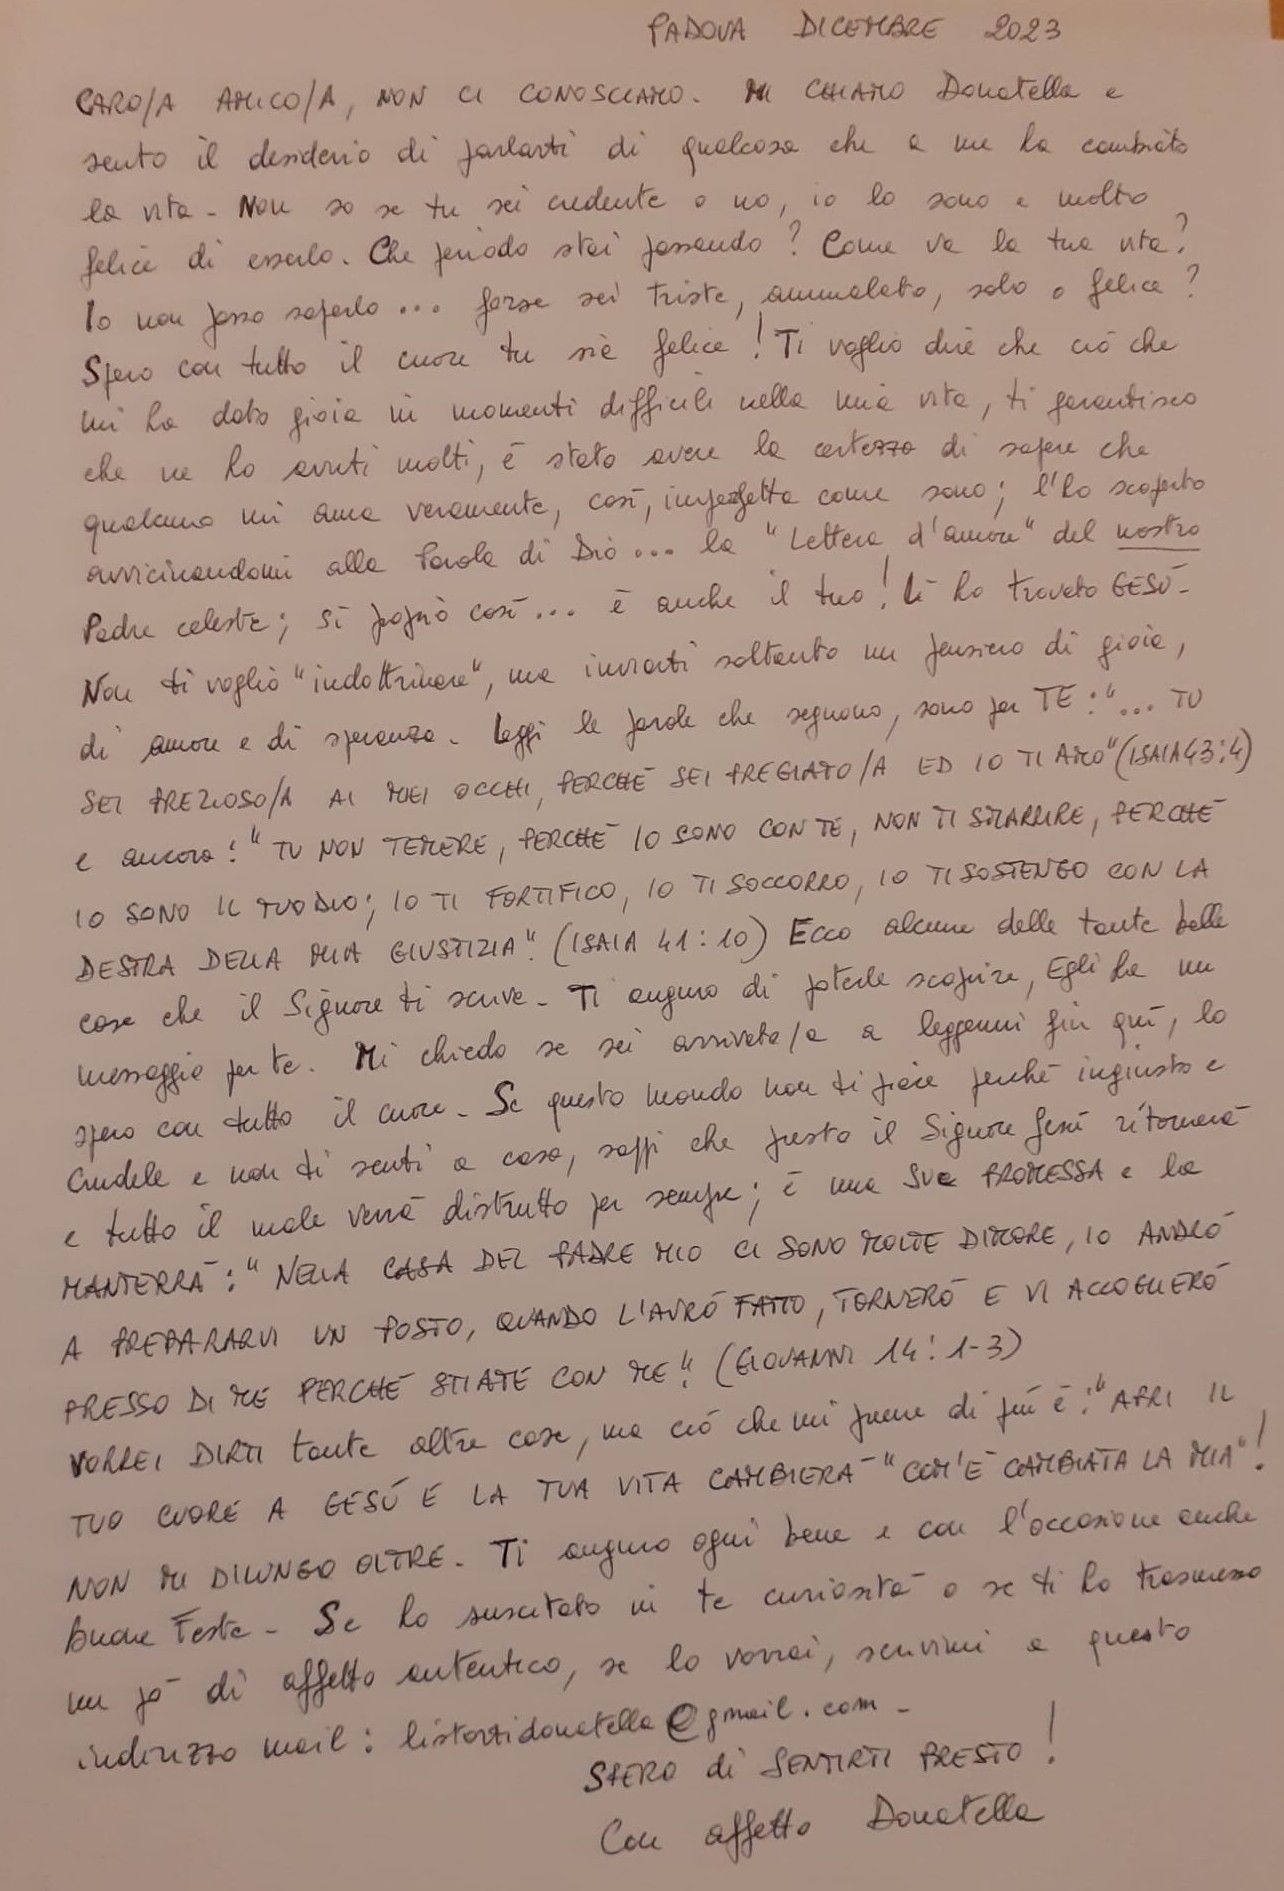 PADOVA DICEMBRE 2023
CARO/A AMICO/A, NON CI CONOSCIAMO. MI CHIAMO Donatella e
sento il desiderio di parlarti di qualcosa che a me ha cambiato
la vita - Non so se tu sei credente o no, io lo sono e molto
felice di esserlo. Che periodo stai passando? Come va la tua vita?
Io non posso saperlo ... forse sei triste, ammalato, solo o felice?
Spero con tutto il cuore tu sia felice! Ti voglio dire che ciò che
mi ha dato gioia in momenti difficili nella mia vita, ti garantisco
che ne ho avuti molti, è stato avere la certezza di sapere che
qualcuno mi ama veramente, così, imperfetta come sono; l'ho scoperto
avvicinandomi alla Parola di Dio ... la "Lettera d'amore" del nostro
Padre celeste; sì proprio così ... è anche il tuo! Lì ho trovato GESÙ -
Non ti voglio "indottrinare", ma inviarti soltanto un pensiero di gioia,
di amore e di speranza - Leggi le parole che seguono, sono per TE: "... TU
SEI PREZIOSO/A AI MIEI OCCHI, PERCHÉ SEI PREGIATO/A ED IO TI AMO" (ISAIA 43:4)
e ancora: "TU NON TEMERE, PERCHÉ IO SONO CON TE, NON TI SMARRIRE, PERCHÉ
IO SONO IL TUO DIO; IO TI FORTIFICO, IO TI SOCCORRO, IO TI SOSTENGO CON LA
DESTRA DELLA MIA GIUSTIZIA". (ISAIA 41:10) Ecco alcune delle tante belle
cose che il Signore ti scrive - Ti auguro di poterle scoprire, Egli ha un
messaggio per te. Mi chiedo se sei arrivato/a a leggermi fin quì, lo
spero con tutto il cuore - Se questo mondo non ti piace perché ingiusto e
crudele e non ti senti a casa, sappi che presto il Signore Gesù ritornerà
e tutto il male verrà distrutto per sempre; è una SUA PROMESSA e la
MANTERRÀ: "NELLA CASA DEL PADRE MIO CI SONO MOLTE DIMORE, IO ANDRÒ
A PREPARARVI UN POSTO, QUANDO L'AVRÒ FATTO, TORNERÒ E VI ACCOGLIERÒ
PRESSO DI ME PERCHÉ STIATE CON ME". (GIOVANNI 14:1-3)
VORREI DIRTI tante altre cose, ma ciò che mi preme di più è: "APRI IL
TUO CUORE A GESÙ E LA TUA VITA CAMBIERÀ - "COM'È CAMBIATA LA MIA"!
NON MI DILUNGO OLTRE. Ti auguro ogni bene e con l'occasione anche
Buone Feste - Se ho suscitato in te curiosità o se ti ho trasmesso
un pò di affetto autentico, se lo vorrai, scrivimi a questo
indirizzo mail: listorzidonatella@gmail.com -
SPERO di SENTIRTI PRESTO!
Con affetto Donatella